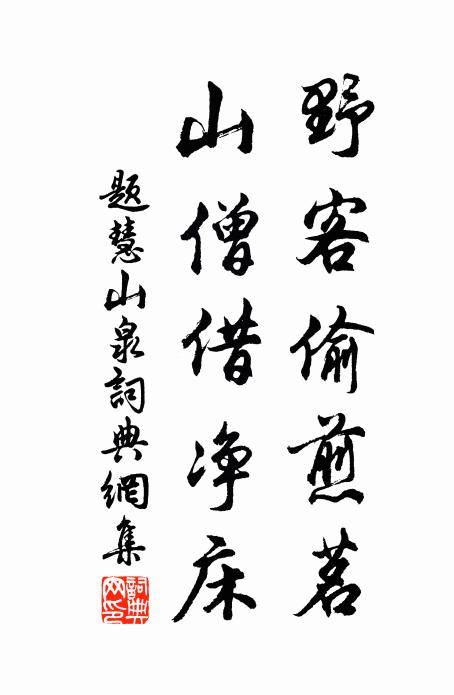 野客偷煎茗
山僧借净床
题慧山泉詞典網集
詞典网印